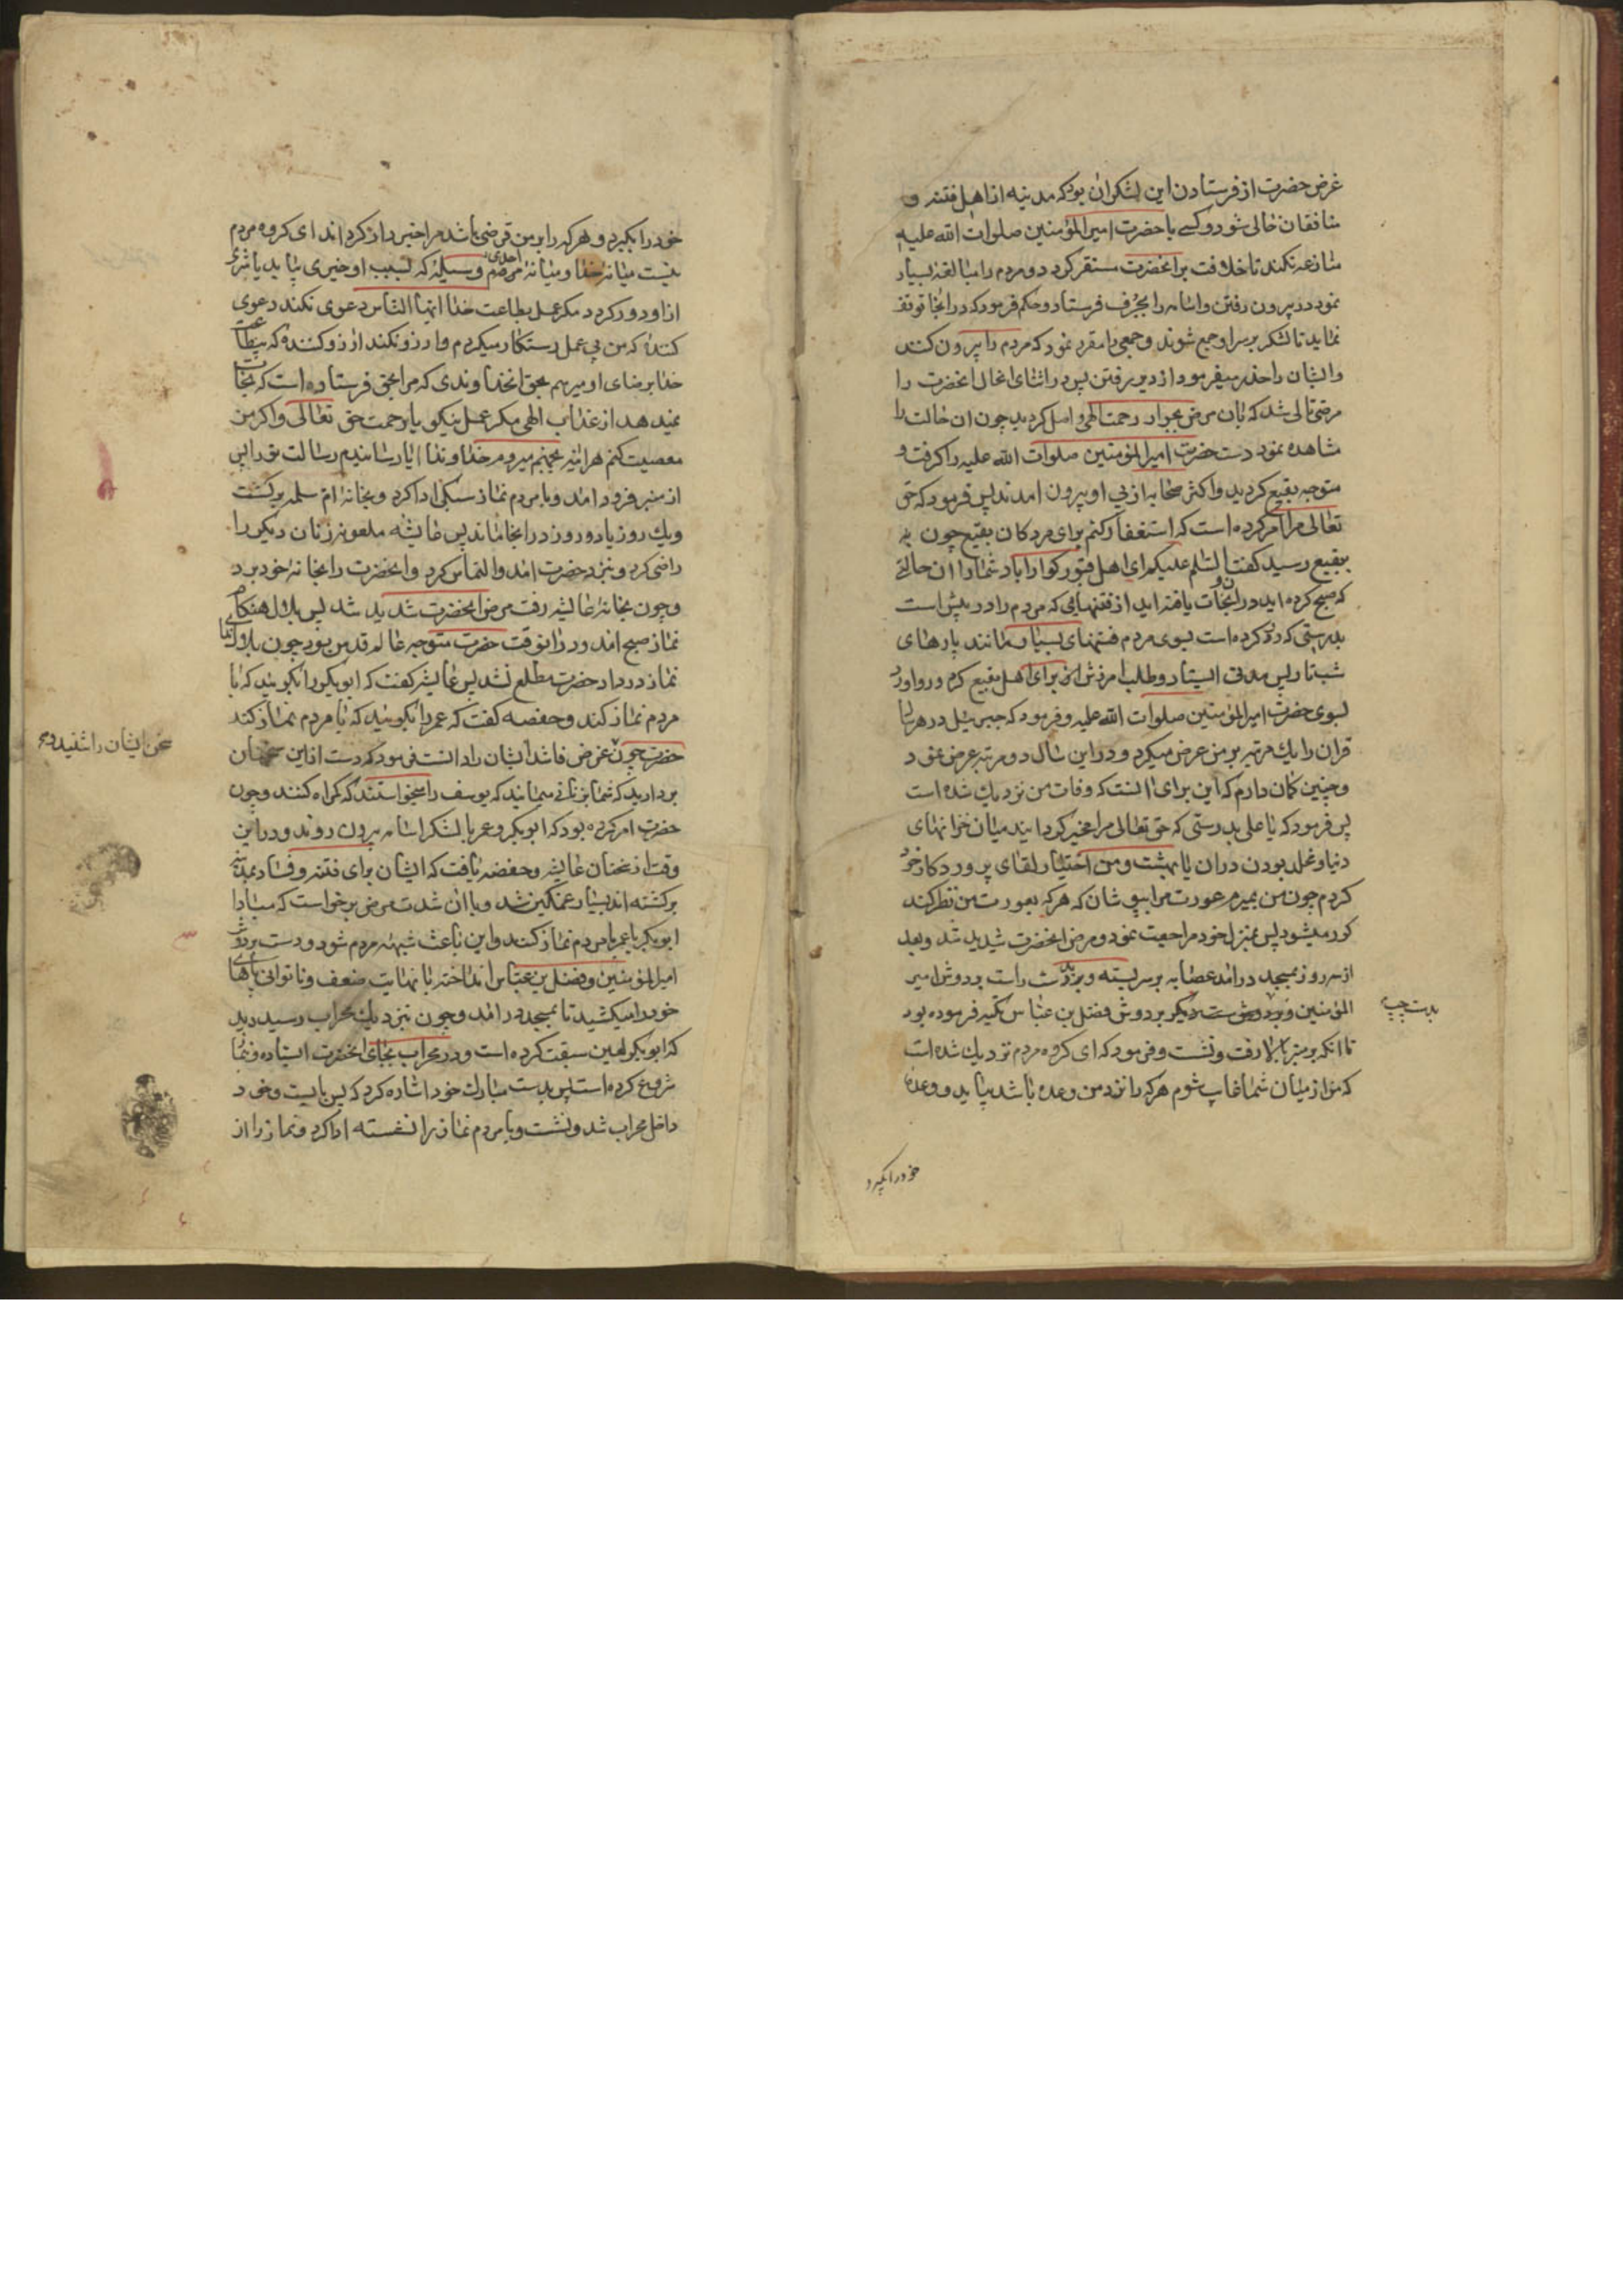 غرض حضرت از فرستادن این لشکر ان بود که مدینه از اهل فتنه و
منافقان خالی شود و کسی با حضرت امیرالمؤمنین صلوات الله علیه
منازعه نکند تا خلافت بر انحضرت مستقر گردد و مردم را مبالغه بسیار
نمود در بیرون رفتن و اسامه را بجرف فرستاد و حکم فرمود که در انجا توقف
نماید تا لشکر بر سر او جمع شوند و جمعی را مقرر نمود که مردم را بیرون کنند
و ایشان را حذر میفرمود از دیر رفتن پس در اثنای انحال انحضرت را
مرضی شد که بان مرض بجوار رحمت الهی واصل گردید چون ان حالت را
مشاهده نمود دست حضرت امیرالمؤمنین صلوات الله علیه را گرفت و
متوجه بقیع گردید و اکثر صحابه از پی او بیرون امدند پس فرمود که حق
تعالی مرا امر کرده است که استغفار کنم برای مردکان بقیع چون به
بقیع رسید گفت السلم علیکم ای اهل قبور گوارا باد شما را ان حالتی
که صبح کرده اید در ان و نجات یافته اید از فتنهایی که مردم را در پیش است
بدرستی که رو کرده است بسوی مردم فتنهای بسیار مانند پارهای
شب تار پس مدتی ایستاد و طلب امرزش برای اهل بقیع کرد و رو اورد
بسوی حضرت امیرالمؤمنین صلوات الله علیه و فرمود که جبرئیل در هر سال
قران را یک مرتبه بر من عرض میکرد و در این سال دو مرتبه عرض نمود
و چنین گمان دارم که این برای انست که وفات من نزدیک شده است
پس فرمود که یا علی بدرستی که حق تعالی مرا مخیر گردانید میان خزانهای
دنیا و مخلد بودن در ان یا بهشت و من اختیار لقای پروردگار خود
کردم چون من بمیرم عورت مرا بپوشان که هر که بعورت من نظر کند
کور میشود پس بمنزل خود مراجعت نمود و مرض انحضرت شدید شد و بعد
از سه روز بمسجد درامد عصابه بر سر بسته و بدست راست بر دوش امیر
المؤمنین و بدست چپ بر دوش فضل بن عباس تکیه فرموده بود
تا انکه بر منبر بالا رفت و نشست و فرمود که ای گروه مردم نزدیک شده است
که من از میان شما غایب شوم هر که را نزد من وعده باشد بیاید و وعده
بدست چپ
خود را بگیرد
خود را بگیرد و هر که را بر من قرضی باشد مرا خبر دار گرداند ای گروه مردم
نیست میانه خدا و میانه احدی وسیله که بسبب او خیری بیابد یا شری
از او دور گردد مگر عمل بطاعت خدا ایها الناس دعوی نکند دعوی
کننده که من بی عمل رستگار میگردم و ارزو نکند ارزو کننده که بیطاعت
خدا برضای او میرسم بحق انخداوندی که مرا بحق فرستاده است که نجات
نمیدهد از عذاب الهی مگر عمل نیکو با رحمت حق تعالی و اگر من
معصیت کنم هراینه بجهنم میروم خداوندا ایا رسانیدم رسالت تو را پس
از منبر فرود امد و با مردم نماز سبکی ادا کرد و بخانه ام سلمه برگشت
و یک روز یا دو روز در انجا ماند پس عایشه ملعونه زنان دیگر را
راضی کرد و بنزد حضرت امد و التماس کرد و انحضرت را بخانه خود برد
و چون بخانه عایشه رفت مرض انحضرت شدید شد پس بلال هنگام
نماز صبح امد و در انوقت حضرت متوجه عالم قدس بود چون بلال ندای
نماز در داد حضرت مطلع نشد پس عایشه گفت که ابوبکر را بگویید که با
مردم نماز کند و حفصه گفت که عمر را بگویید که با مردم نماز کند
حضرت چون غرض فاسد ایشان را دانست فرمود که دست از این سخنان
بردارید که شما بزنانی میمانید که یوسف را میخواستند که گمراه کنند و چون
حضرت امر کرده بود که ابوبکر و عمر با لشکر اسامه بیرون روند و در این
وقت از سخنان عایشه و حفصه یافت که ایشان برای فتنه و فساد بمدینه
برگشته اند بسیار غمگین شد و با ان شدت مرض برخواست که مبادا
ابوبکر یا عمر با مردم نماز کنند و این باعث شبهه مردم شود و دست بر دوش
امیرالمؤمنین و فضل بن عباس انداخته با نهایت ضعف و ناتوانی پاهای
خود را میکشید تا بمسجد درامد و چون بنزدیک محراب رسید دید
که ابوبکر لعین سبقت کرده است و در محراب بجای انحضرت ایستاده و نماز
شروع کرده است پس بدست مبارک خود اشاره کرد که پس بایست و خود
داخل محراب شد و نشست و با مردم نماز را نشسته ادا کرد و نماز را از
سخن ایشان را شنید و